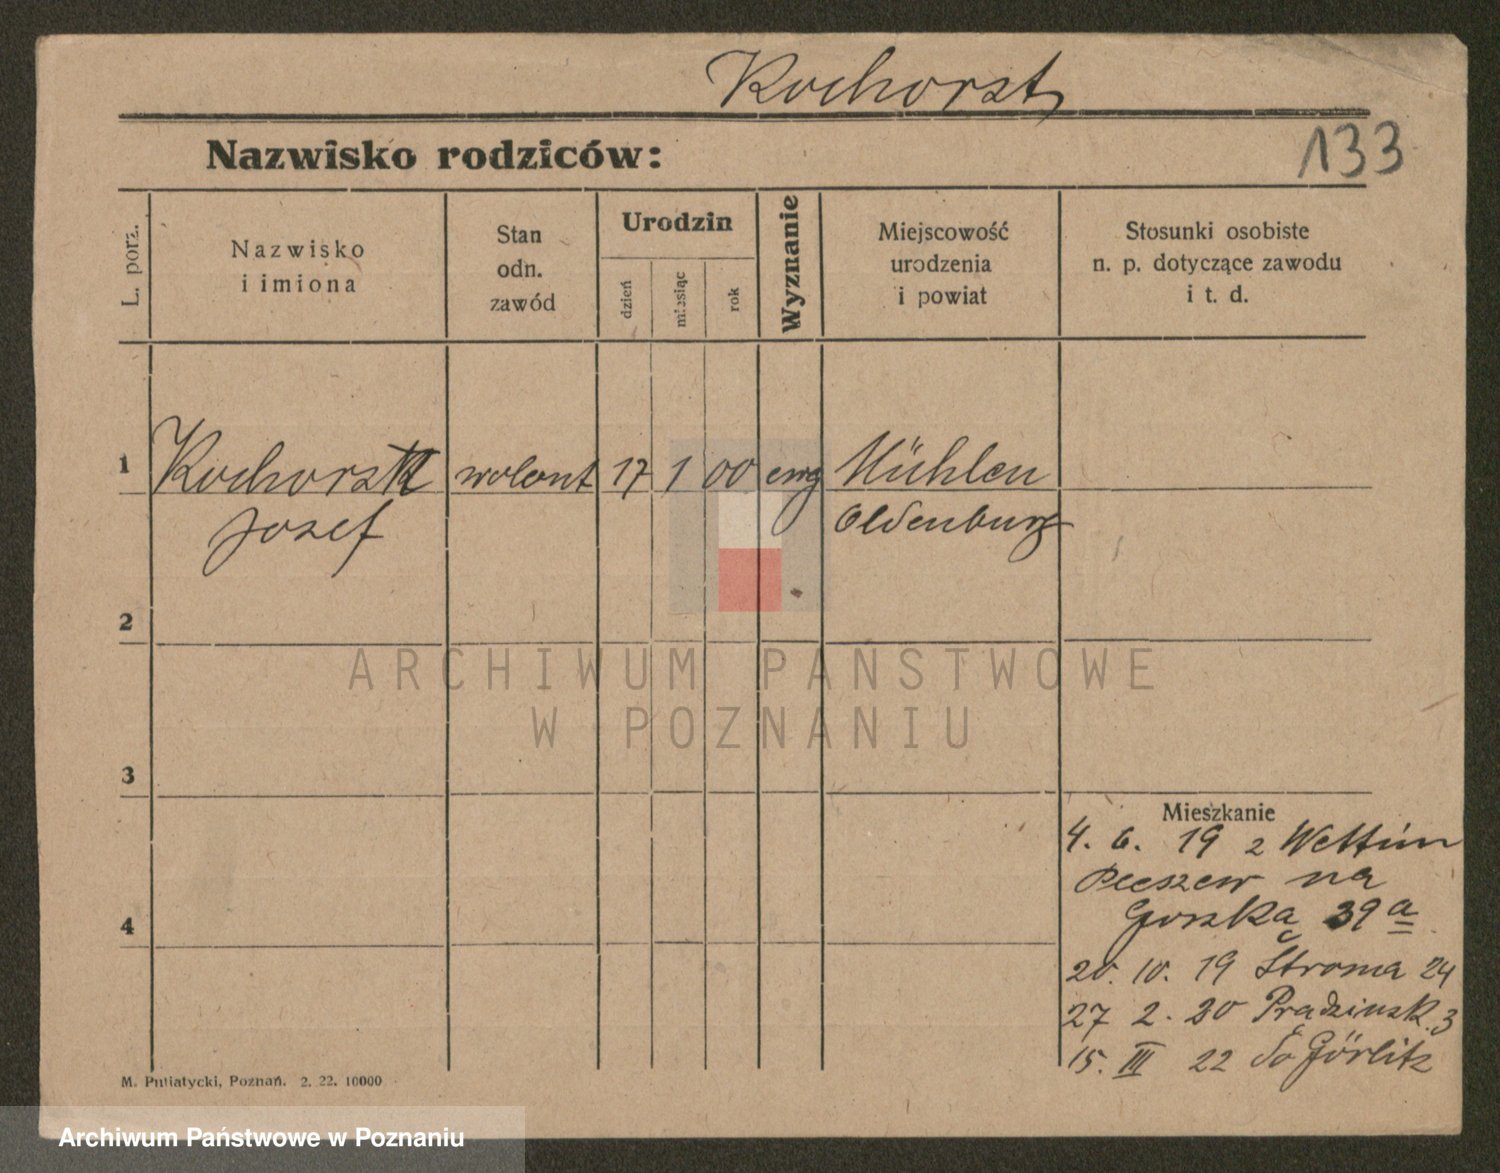 Kochorst
133
Nazwisko rodziców:
L. porz.
Nazwisko
i imiona
Stan
odn.
zawód
Urodzin
dzień
miesiąc
rok
Wyznanie
Miejscowość
urodzenia
i powiat
Stosunki osobiste
n. p. dotyczące zawodu
i t. d.
1
Kochorst wolont 17 1 00 ewg Mühlen
Jozef Oldenburg
2
ARCHIWUM PAŃSTWOWE
W POZNANIU
3
Mieszkanie
4. 6. 19 z
Pleszew na
4
39 a
20. 10. 19 Stroma 24
27 2. 20 Pradzinsk. 3
15. III 22 do Görlitz
M. Putiatycki, Poznań. 2. 22. 10000
Archiwum Państwowe w Poznaniu